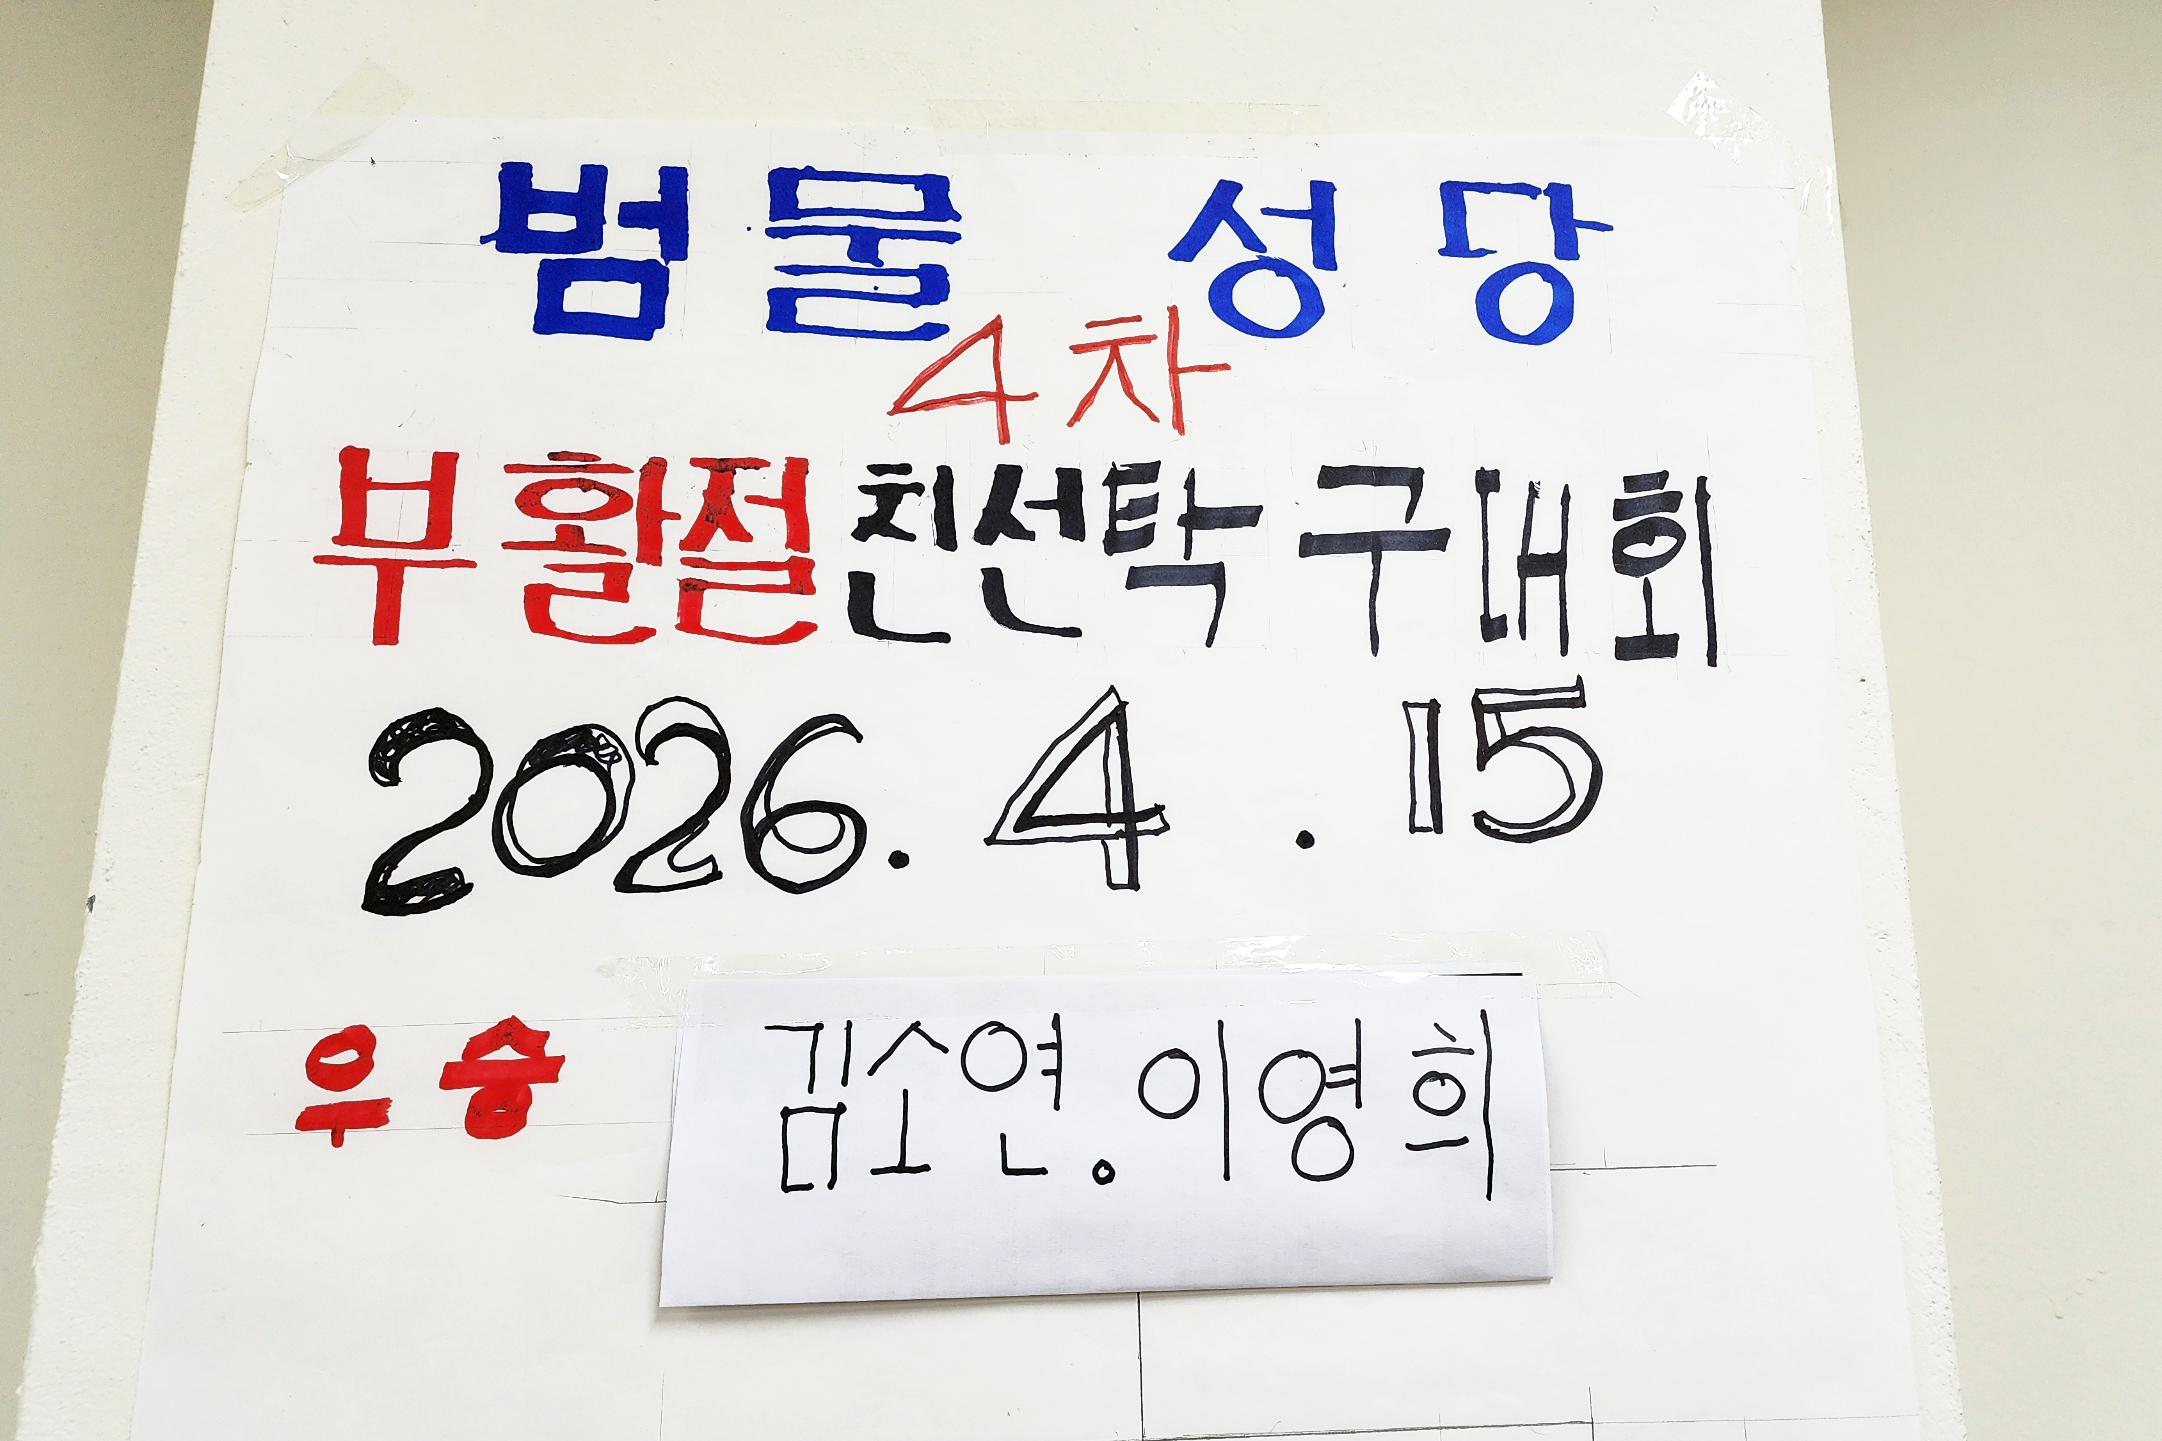 범물 성당
4차
부활절친선탁구대회
2026. 4 . 15
우승 김소연. 이영희